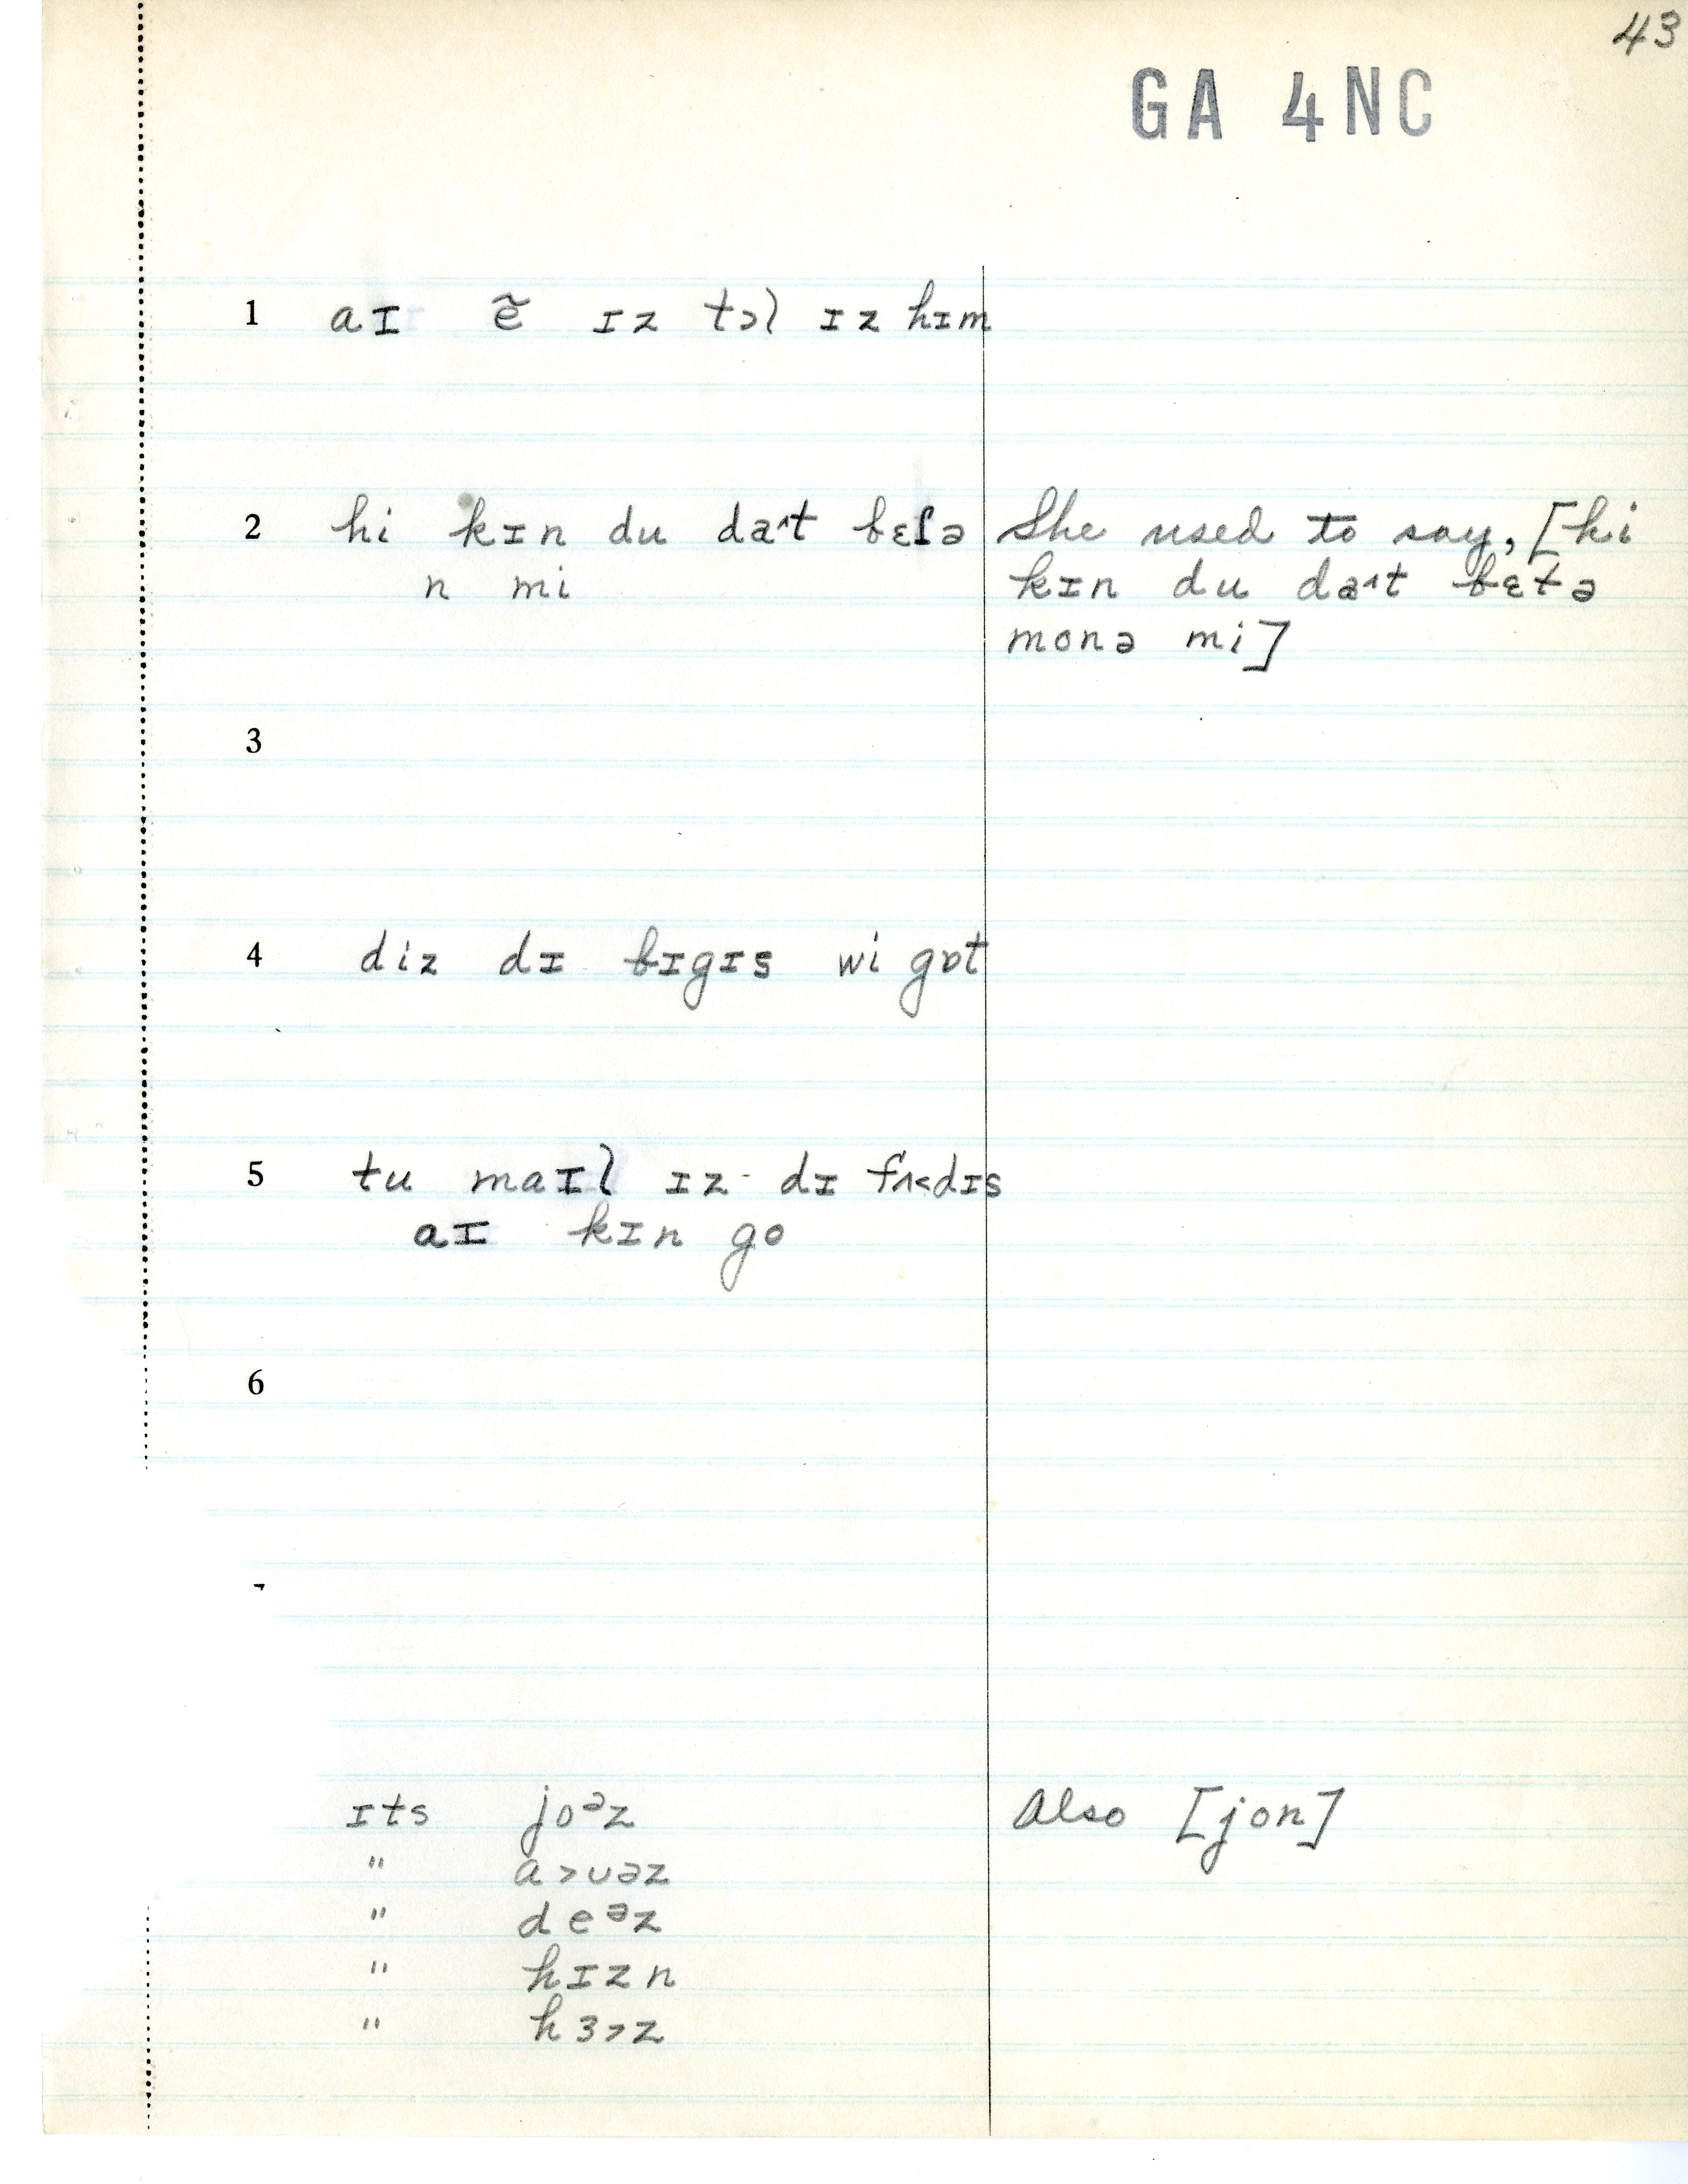 43
GA 4NC
1 aɪ ẽ ɪz tɔl ɪz hɪm
2 hi kɪn du da˄t bɛſə
n mi
She used to say, [hi
kɪn du da˄t bɛtə
monə mi]
3
4 diz dɪ bɪgɪs wi gɒt
5 tu maɪl ɪz dɪ fʌ˂dɪs
aɪ kɪn go
6
ɪts joᵊz
" a˃ʊəz
" deᵊz
" hɪzn
" hɜ˃z
Also [jon]